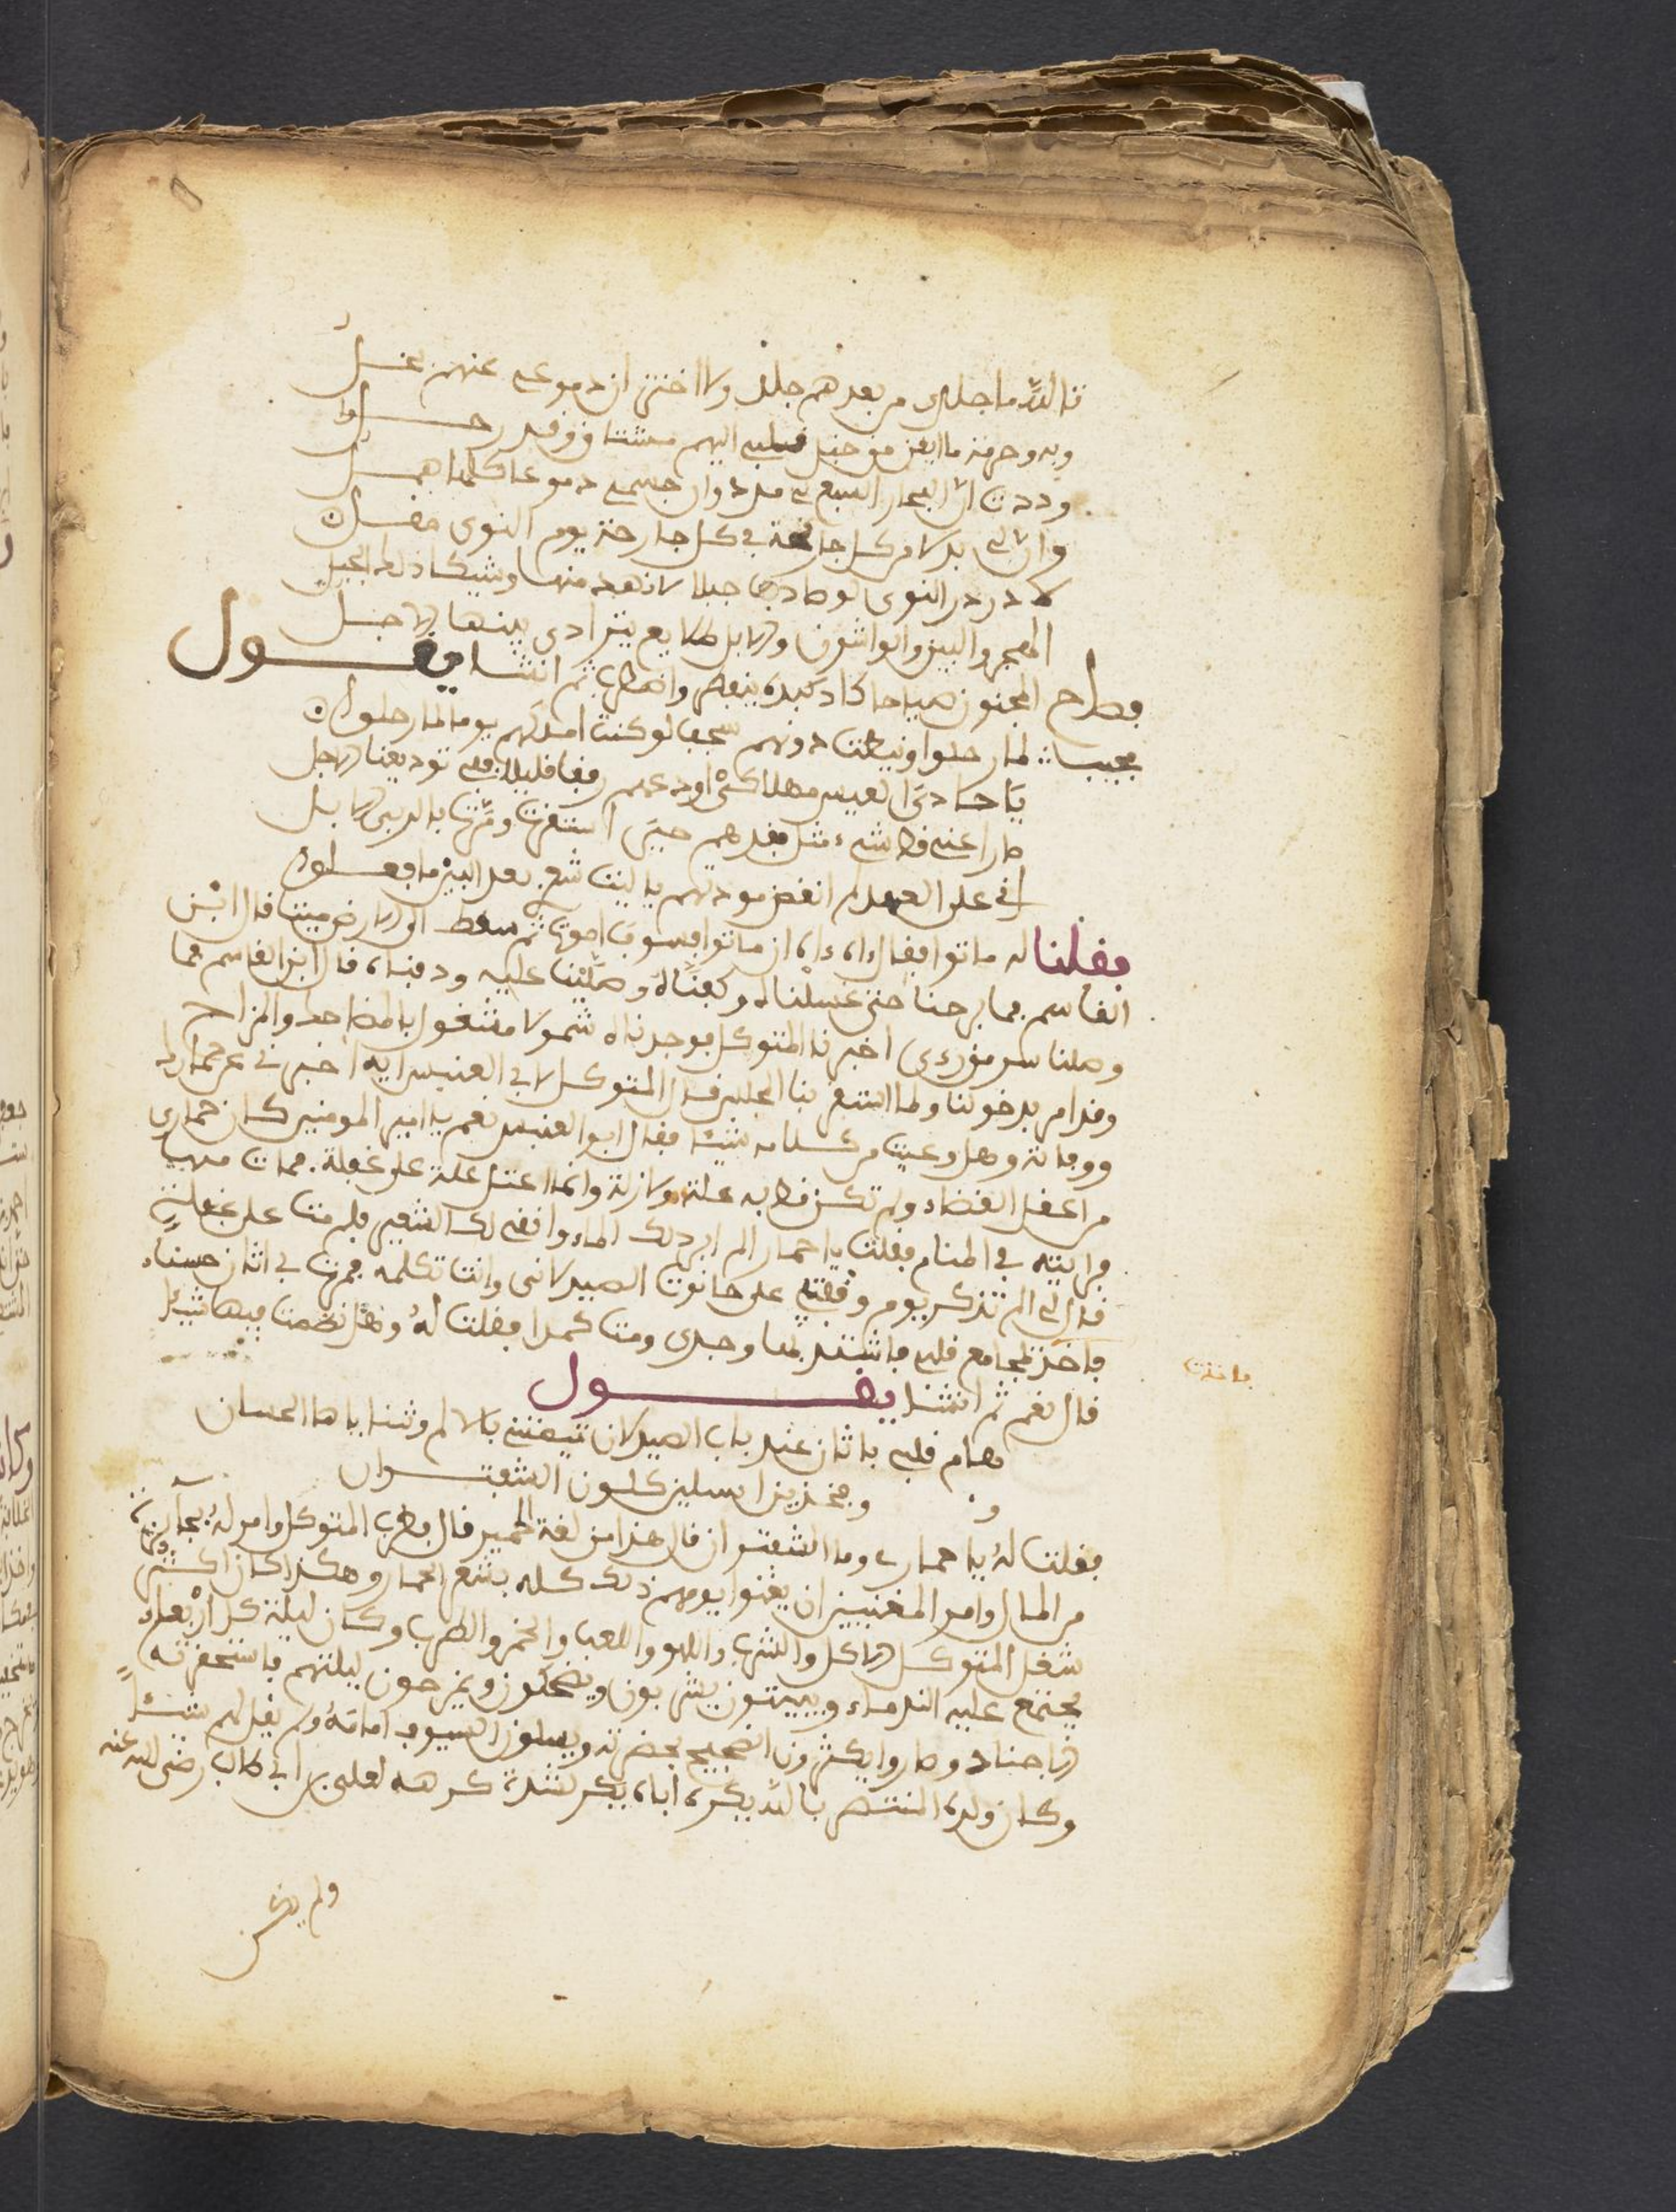 تالله ما جلدي من بعدهم جلد ولا اختزان دموعي عنهم بخل
وددت ان البحار السبع لي مدد وان جسمي دموعا كلها همل
وان لي بدلا من كل جانحة في كل جارحة يوم النوى مقل
لا در در النوى لو صادفت جبلا لانهد منها وشيكا ذلك الجبل
الهجر والبين والواشون والابل طلايع يتراءى بينها الاجل
فصاح المجنون صياحا كاد كبده ينفطر واضطرب ثم انشا يقول
يا حادي العيس مهلا كي اودعهم رفقا قليلا ففي توديعنا الاجل
ما راعني قط شيء مثل فقدهم حتى استقرت ومرت بالدمى الابل
اني على العهد لم انقض مودتهم يا ليت شعري بعد البين ما فعلوا
فقلنا له ماتوا فقال اه اه ان ماتوا فسوف اموت ثم سقط الى الارض ميتا قال ابن
القاسم فما برحنا حتى غسلناه وكفناه وصلينا عليه ودفناه قال ابن القاسم فما
وصلنا سر من رءى اخبرنا المتوكل فوجدناه ثمولا مشغول بالمضاحك والمزاح
وقد امر بدخولنا ولما استقر بنا المجلس قال المتوكل لابي العنبس ايه اخبرني عن حمارك
ووفاته وهل وعيت من كلامه شيئا فقال ابو العنبس نعم يا امير المومنين كان حماري
من اعقل القضاة ولم تكن قط به علة ولا زلة وانما اعتل علة على غفلة فمات منها
فرايته في المنام فقلت يا حمار الم ابرد لك الماء وانقي لك الشعير فلم مت على غفلة
قال لي الم تذكر يوم وقفتني على حانوت الصيدلاني وانت تكلمه فمرت بي اتان حسناء
فاخذ بمجامع قلبي فاشتد بها وجدي ومت كمدا فقلت له وهل نظمت فيها شيئا
فاخذت
قال نعم ثم انشا يقول
هام قلبي باتان عند باب الصيدلان تيمتني بالالم وثناياها الحسان
وبخدين اسيلين كلون الشقنران
فقلت له يا حماري وما الشقنران قال هذا من لغة الحمير قال فطرب المتوكل وامر له بجائزة
من المال وامر المغنيين ان يغنوا يومهم ذلك كله بشعر الحمار وهكذا كان اكثر
شغل المتوكل الاكل والشرب واللهو واللعب والخمر والطرب وكان ليلة كل اربعاء
يجتمع عليه الندماء ويبيتون يشربون ويضحكون ويمزحون ليلتهم فاستحقرته
الاجناد وصاروا يكثرون الضجيج بحضرته ويسلون السيوف امامه ولم يقل لهم شيئا
وكان ولده المنتصر بالله يكره اباه بكر لشدة كرهه لعلي بن ابي طالب رضي الله عنه
ولم يكن